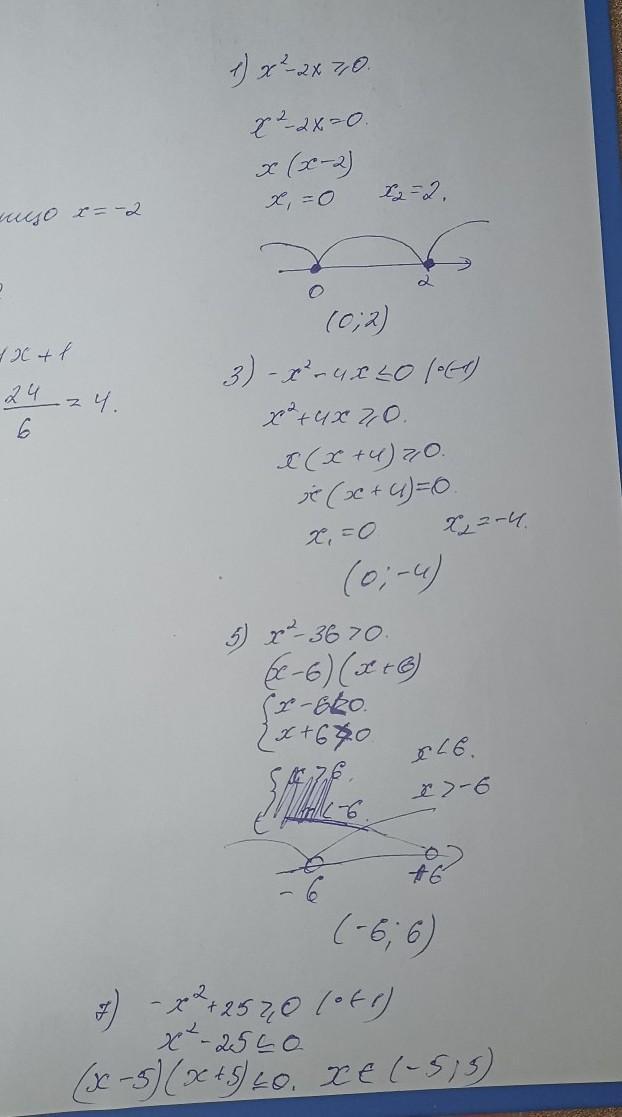 1) x²-2x ⩾ 0.
x²-2x=0.
x(x-2)
x₁=0 x₂=2.
0 2
(0;2)
x=-2
x+1
24/6 = 4.
3) -x²-4x ≤ 0 |·(-1)
x²+4x ⩾ 0.
x(x+4) ⩾ 0.
x(x+4)=0.
x₁=0 x₂=-4.
(0;-4)
5) x²-36>0.
(x-6)(x+6)
x-6<0.
x+6>0
x<6.
x>6.
x>-6
<-6.
-6 +6
(-6;6)
7) -x²+25 ⩾ 0 |·(-1)
x²-25 ≤ 0
(x-5)(x+5) ≤ 0. x ∈ (-5;5)